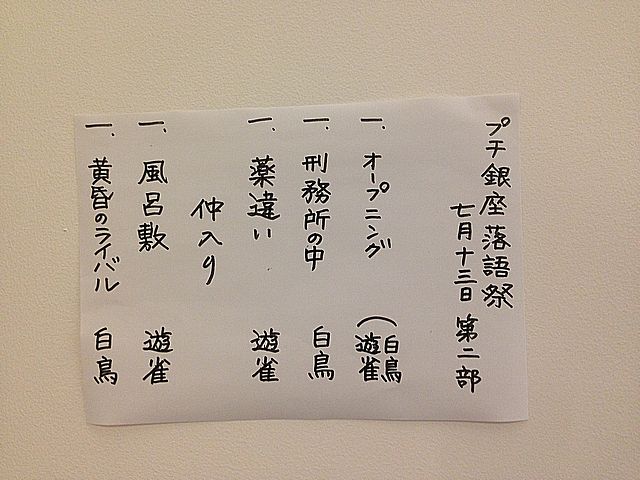 プチ銀座落語祭
七月十三日 第二部
一、オープニング (白鳥
遊雀
一、刑務所の中 白鳥
一、薬違い 遊雀
仲入り
一、風呂敷 遊雀
一、黄昏のライバル 白鳥